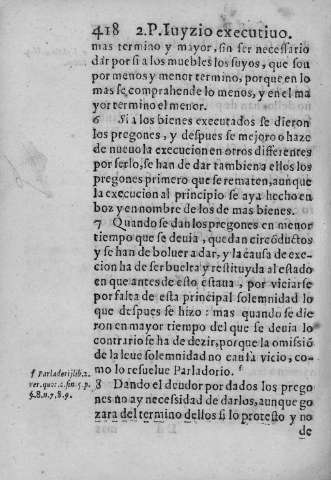 418 2.P. Iuyzio executiuo.
mas termino y mayor, sin ser necessario
dar por si a los muebles los suyos, que son
por menos y menor termino, porque en lo
mas se comprahende lo menos, y en el ma
yor termino el menor.
6 Si a los bienes executados se dieron
los pregones, y despues se mejoro o haze
de nueuo la execucion en otros differentes
por serlo, se han de dar tambien a ellos los
pregones primero que se rematen, aunque
la execucion al principio se aya hecho en
boz y en nombre de los de mas bienes.
7 Quando se dan los pregones en menor
tiempo que se deuia, quedan circõductos
y se han de boluer a dar, y la causa de exe-
cion ha de ser buelta y restituyda al estado
en que antes de esto estaua, por viciarse
por falta de esta principal solemnidad lo
que despues se hizo: mas quando se die
ron en mayor tiempo del que se deuia lo
contrario se ha de dezir, porque la omissiõ
de la leue solemnidad no causa vicio, co-
mo lo resuelue Parladorio. f
f Parladori, lib. 2.
rer. quot. c. fin. 5. p.
§. 8. n. 7. 8. 9.
8 Dando el deudor por dados los prego
nes no ay necessidad de darlos, aunque go
zara del termino dellos si lo protesto y no
de